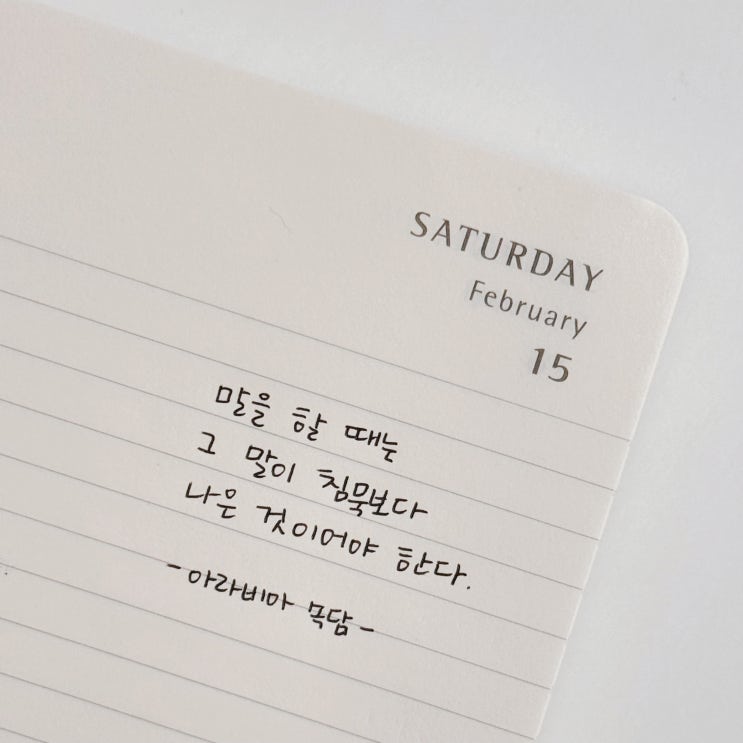 SATURDAY
February
15
말을 할 때는
그 말이 침묵보다
나은 것이어야 한다.
-아라비아 속담-